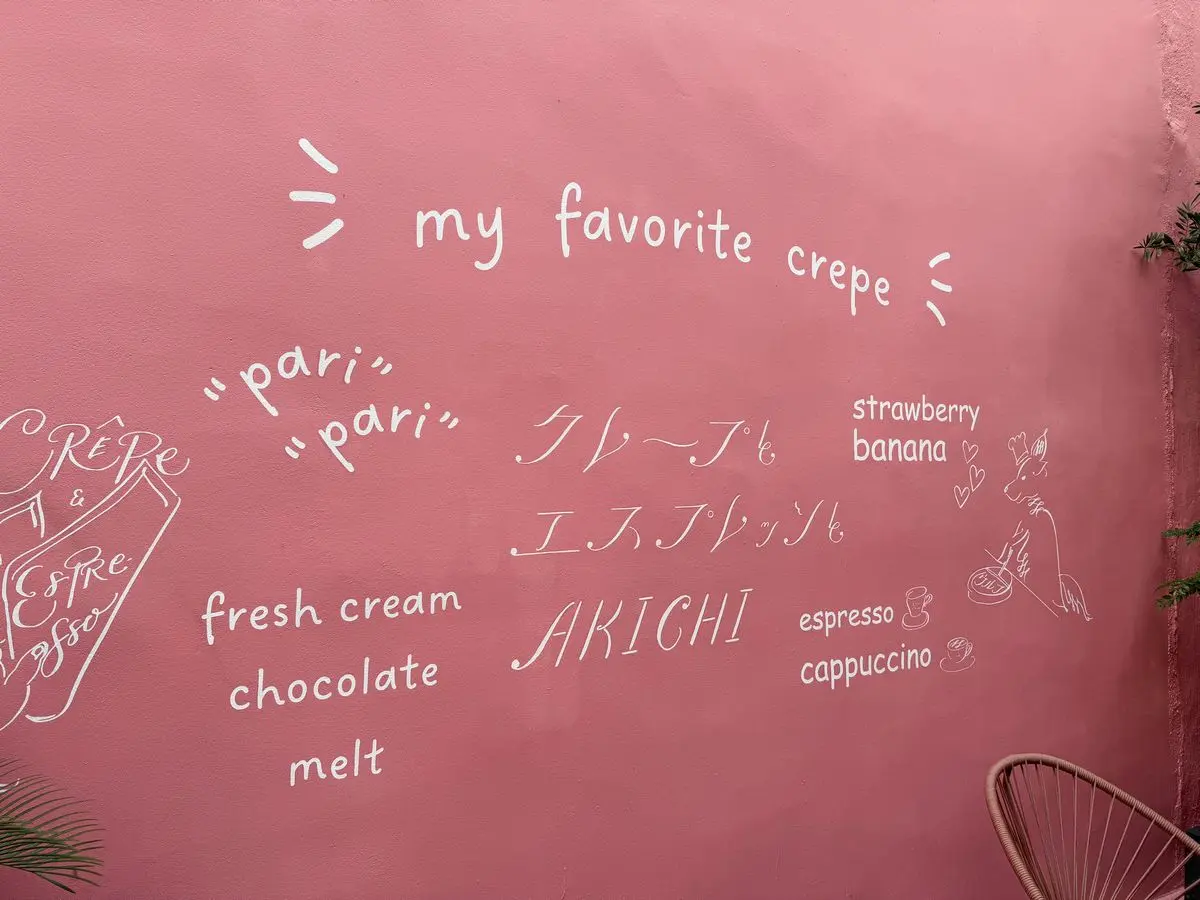 my favorite crepe
"pari"
"pari"
CRÊPE
&
ESPRE-
sso
クレープと
エスプレッソと
AKICHI
strawberry
banana
fresh cream
chocolate
melt
espresso
cappuccino